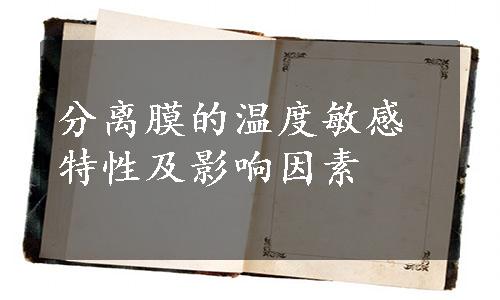 分离膜的温度敏感
特性及影响因素